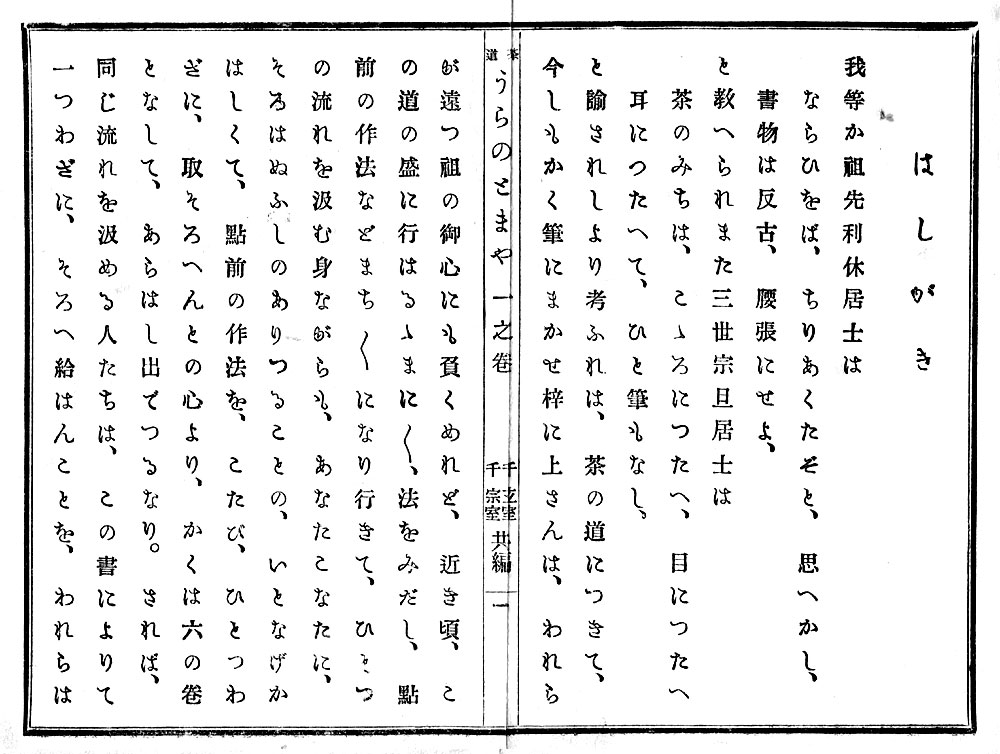 はしがき
我等か祖先利休居士は
ならひをば、ちりあくたぞと、思へかし、
書物は反古、腰張にせよ、
と教へられまた三世宗旦居士は
茶のみちは、こゝろにつたへ、目につたへ
耳につたへて、ひと筆もなし。
と諭されしより考ふれは、茶の道につきて、
今しもかく筆にまかせ梓に上さんは、われら
茶道 うらのとまや 一之卷 千玄室 千宗室 共編 一
が遠つ祖の御心にも負くめれど、近き頃、こ
の道の盛に行はるゝまに〳〵、法をみだし、點
前の作法などまち〳〵になり行きて、ひとつ
の流れを汲む身ながらも、あなたこなたに、
そろはぬふしのありつることの、いとなげか
はしくて、點前の作法を、こたび、ひとつわ
ざに、取そろへんとの心より、かくは六の卷
となして、あらはし出でつるなり。されば、
同じ流れを汲める人たちは、この書によりて
一つわざに、そろへ給はんことを、われらは